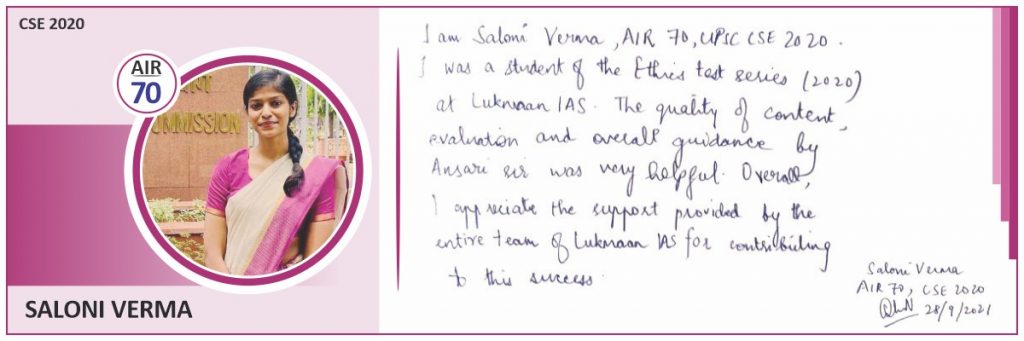 CSE 2020
AIR
70
MMISSION
SALONI VERMA
I am Saloni Verma, AIR 70, UPSC CSE 2020.
I was a student of the Ethics test series (2020)
at Lukmaan IAS. The quality of content,
evaluation and overall guidance by
Ansari sir was very helpful. Overall,
I appreciate the support provided by the
entire team of Lukmaan IAS for contributing
to this success.
Saloni Verma
AIR 70, CSE 2020
28/9/2021